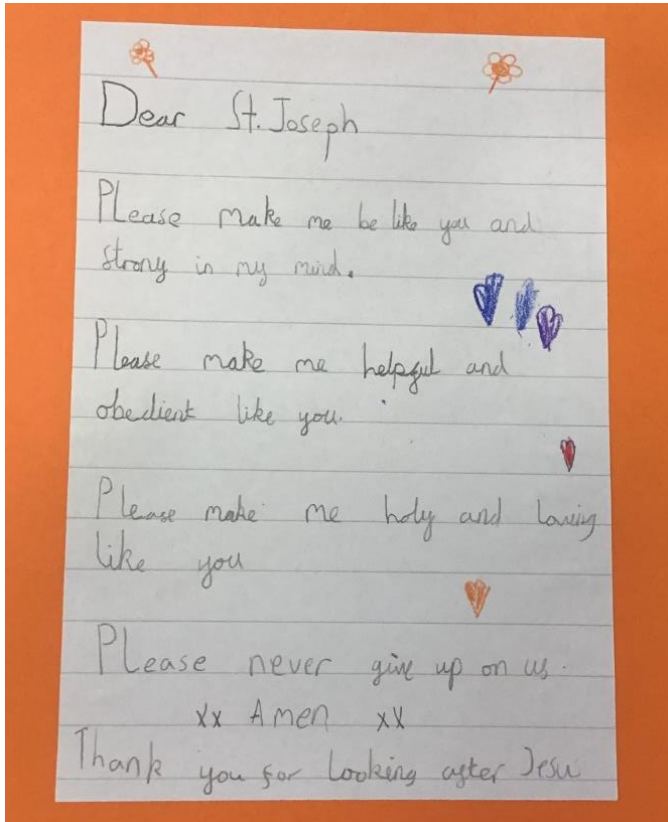 Dear St. Joseph
Please make me be like you and
strong in my mind.
Please make me helpful and
obedient like you.
Please make me holy and loving
like you
Please never give up on us.
xx Amen xx
Thank you for looking after Jesu